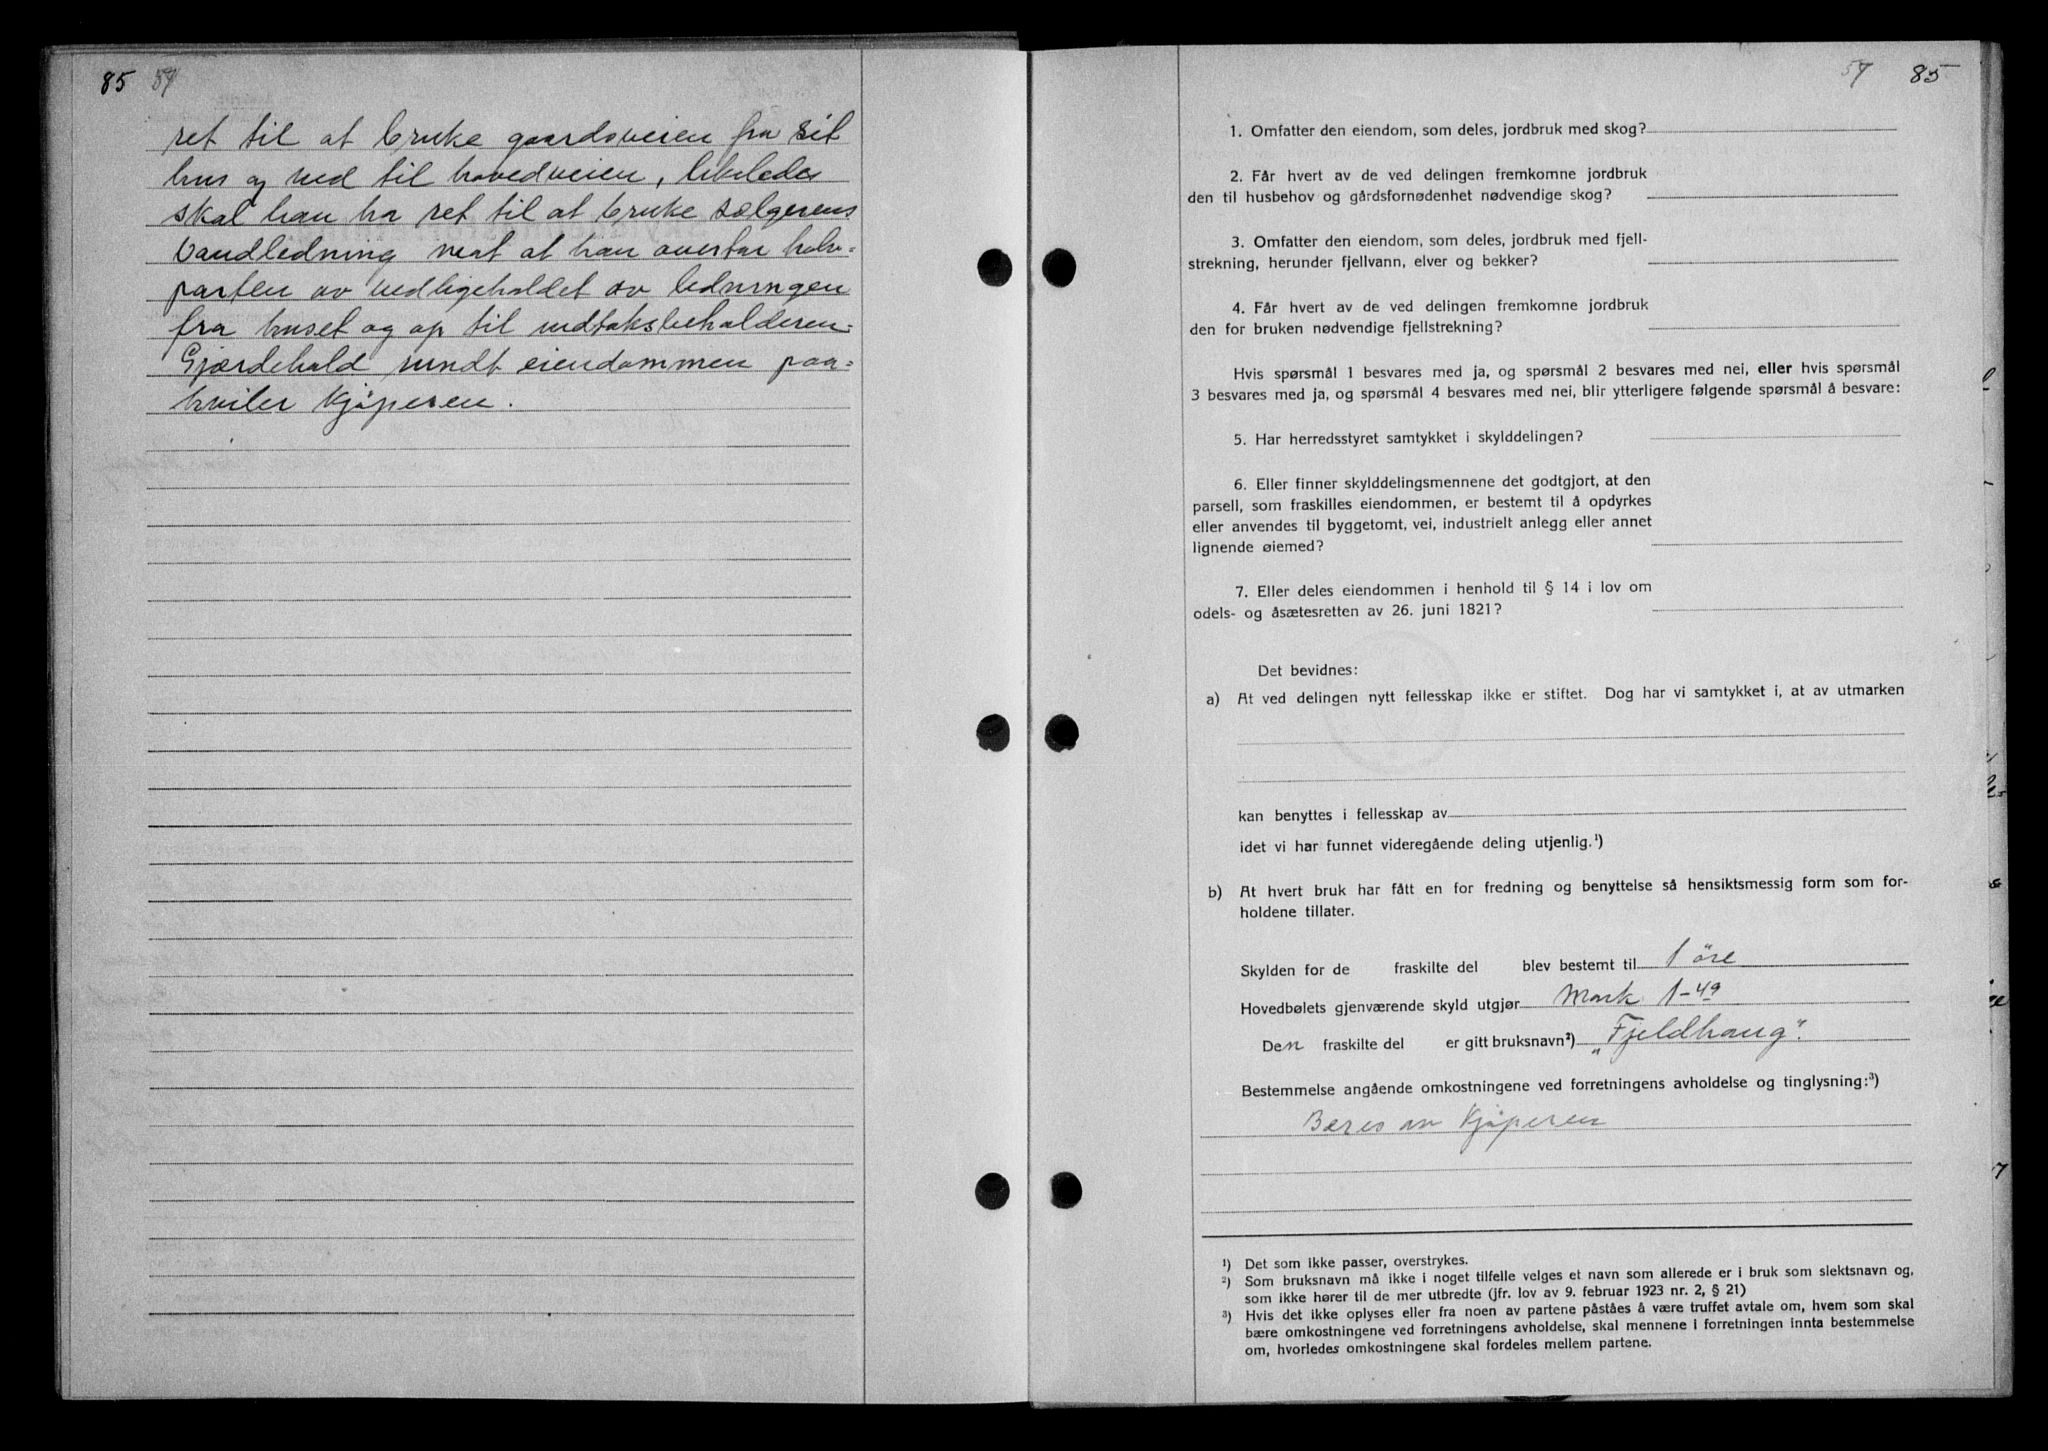 85 57
ret til at bruke gaardsveien fra sit
hus og ned til hovedveien, likeledes
skal han ha ret til at bruke sælgerens
Vandledning mot at han overtar halv-
parten av vedligeholdet av ledningen
fra huset og op til indtaksbeholderen.
Gjærdehold rundt eiendommen paa-
hviler Kjøperen.
57 85
1. Omfatter den eiendom, som deles, jordbruk med skog?
2. Får hvert av de ved delingen fremkomne jordbruk
den til husbehov og gårdsfornødenhet nødvendige skog?
3. Omfatter den eiendom, som deles, jordbruk med fjell-
strekning, herunder fjellvann, elver og bekker?
4. Får hvert av de ved delingen fremkomne jordbruk
den for bruken nødvendige fjellstrekning?
Hvis spørsmål 1 besvares med ja, og spørsmål 2 besvares med nei, eller hvis spørsmål
3 besvares med ja, og spørsmål 4 besvares med nei, blir ytterligere følgende spørsmål å besvare:
5. Har herredsstyret samtykket i skylddelingen?
6. Eller finner skylddelingsmennene det godtgjort, at den
parsell, som fraskilles eiendommen, er bestemt til å opdyrkes
eller anvendes til byggetomt, vei, industrielt anlegg eller annet
lignende øiemed?
7. Eller deles eiendommen i henhold til § 14 i lov om
odels- og åsætesretten av 26. juni 1821?
Det bevidnes:
a) At ved delingen nytt fellesskap ikke er stiftet. Dog har vi samtykket i, at av utmarken
kan benyttes i fellesskap av
idet vi har funnet videregående deling utjenlig.¹)
b) At hvert bruk har fått en for fredning og benyttelse så hensiktsmessig form som for-
holdene tillater.
Skylden for de fraskilte del blev bestemt til 1 öre
Hovedbølets gjenværende skyld utgjør Mark 1-49
Den fraskilte del er gitt bruksnavn²) „Fjeldhaug".
Bestemmelse angående omkostningene ved forretningens avholdelse og tinglysning:³)
Bæres av Kjøperen
¹) Det som ikke passer, overstrykes.
²) Som bruksnavn må ikke i noget tilfelle velges et navn som allerede er i bruk som slektsnavn og,
som ikke hører til de mer utbredte (jfr. lov av 9. februar 1923 nr. 2, § 21)
³) Hvis det ikke oplyses eller fra noen av partene påståes å være truffet avtale om, hvem som skal
bære omkostningene ved forretningens avholdelse, skal mennene i forretningen innta bestemmelse
om, hvorledes omkostningene skal fordeles mellem partene.